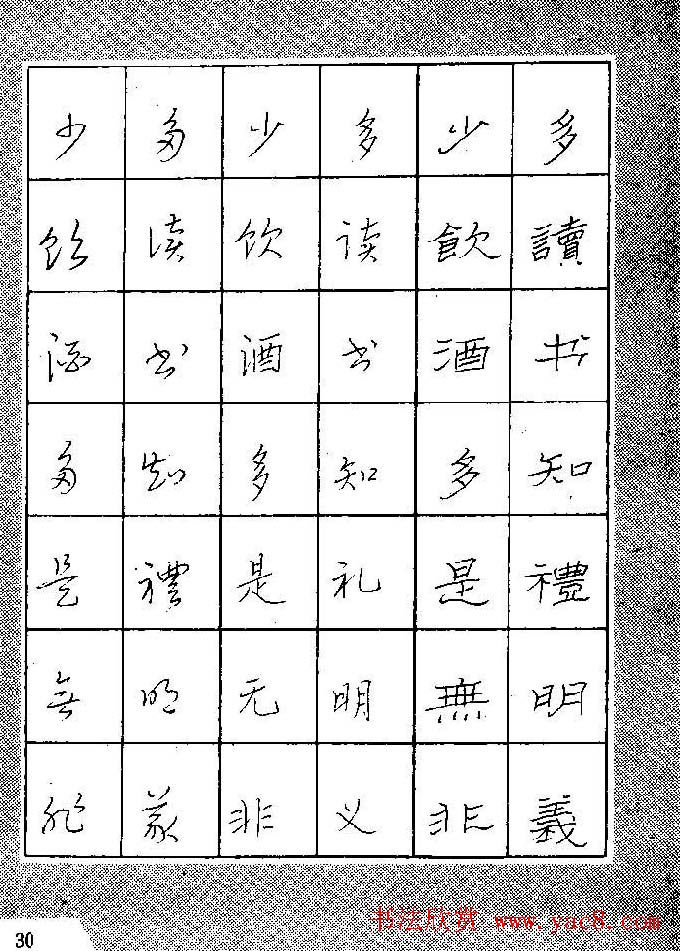 多讀书知禮明義
少飲酒多是無非
多读书知礼明义
少饮酒多是无非
多读书知禮明義
少饮酒多是無非
30
书法欣赏 www.yac8.com